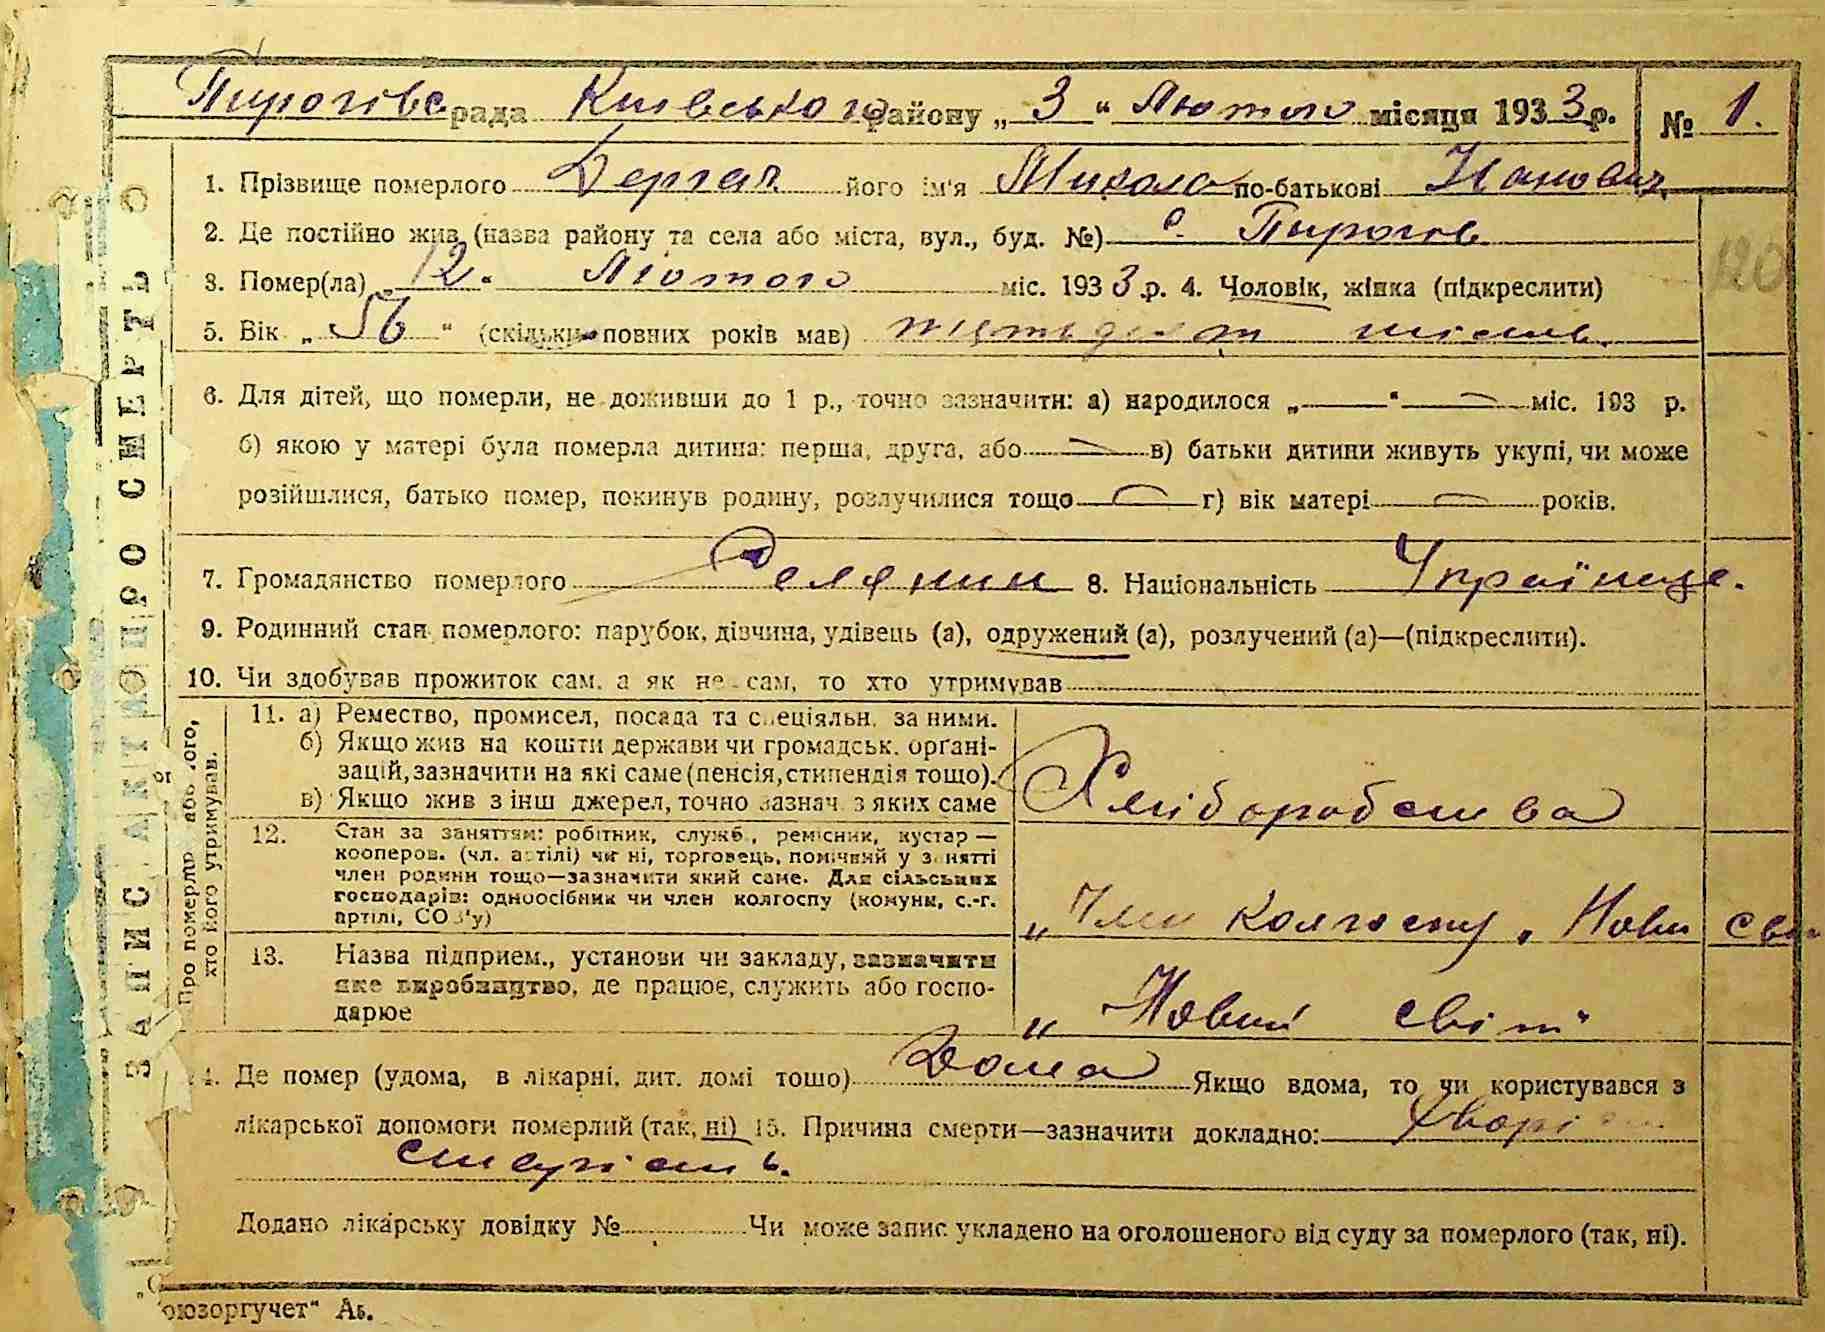 Пирогівс рада Київського району „ 3 “ Лютого місяця 1933 р. № 1.
1. Прізвище померлого Дергач його ім'я Микола по-батькові Іванович
2. Де постійно жив (назва району та села або міста, вул., буд. №) с. Пирогов
120
3. Помер(ла) „ 12 “ Лютого міс. 1933 р. 4. Чоловік, жінка (підкреслити)
5. Вік „ 56 “ (скільки повних років мав) пятьдесят шість.
6. Для дітей, що померли, не доживши до 1 р., точно зазначити: а) народилося „ — “ — міс. 193 р.
б) якою у матері була померла дитина: перша, друга, або — в) батьки дитини живуть укупі, чи може
розійшлися, батько помер, покинув родину, розлучилися тощо — г) вік матері — років.
7. Громадянство померлого Селянин 8. Національність Українце.
9. Родинний стан померлого: парубок, дівчина, удівець (а), одружений (а), розлучений (а)—(підкреслити).
10. Чи здобував прожиток сам, а як не сам, то хто утримував
Про померлого, або того,
хто його утримував.
11. а) Ремество, промисел, посада та спеціяльн. за ними.
б) Якщо жив на кошти держави чи громадськ. орґані-
зацій, зазначити на які саме (пенсія, стипендія тощо).
в) Якщо жив з інш джерел, точно зазнач. з яких саме
Хліборобства
12. Стан за заняттям: робітник, служб., ремісник, кустар —
кооперов. (чл. артілі) чи ні, торговець, помічний у занятті
член родини тощо—зазначити який саме. Для сільських
господарів: одноосібник чи член колгоспу (комуни, с.-г.
артілі, СОЗ'у)
„Член колгоспу „Нови сві
13. Назва підприєм., установи чи закладу, зазначити
яке виробництво, де працює, служить або госпо-
дарює
„Новий світ“
14. Де помер (удома, в лікарні, дит. домі тощо) Дома Якщо вдома, то чи користувався з
лікарської допомоги померлий (так, ні) 15. Причина смерти—зазначити докладно:
Додано лікарську довідку № Чи може запис укладено на оголошеного від суду за померлого (так, ні).
ЗАПИС АКТІВ ПРО СМЕРТЬ
оюзоргучет“ Аб.